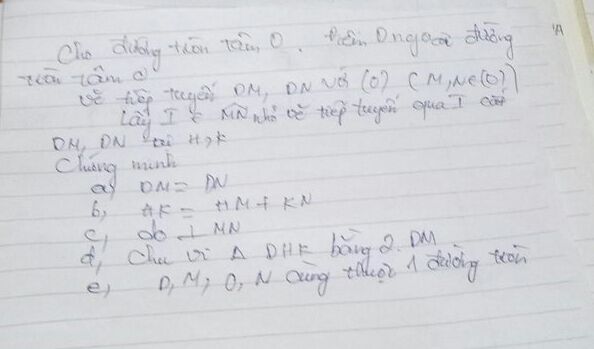 Cho đường tròn tâm O. Điểm D ngoài đường
tròn tâm O
Vẽ tiếp tuyến DM, DN với (O) (M,N∈(O))
Lấy I ∈ MN nhỏ vẽ tiếp tuyến qua I cắt
DM, DN tại H, K
Chứng minh
a, DM = DN
b, HK = HM + KN
c, do ⊥ MN
d, Chu vi Δ DHK bằng 2. DM
e, D, M, O, N cùng thuộc 1 đường tròn